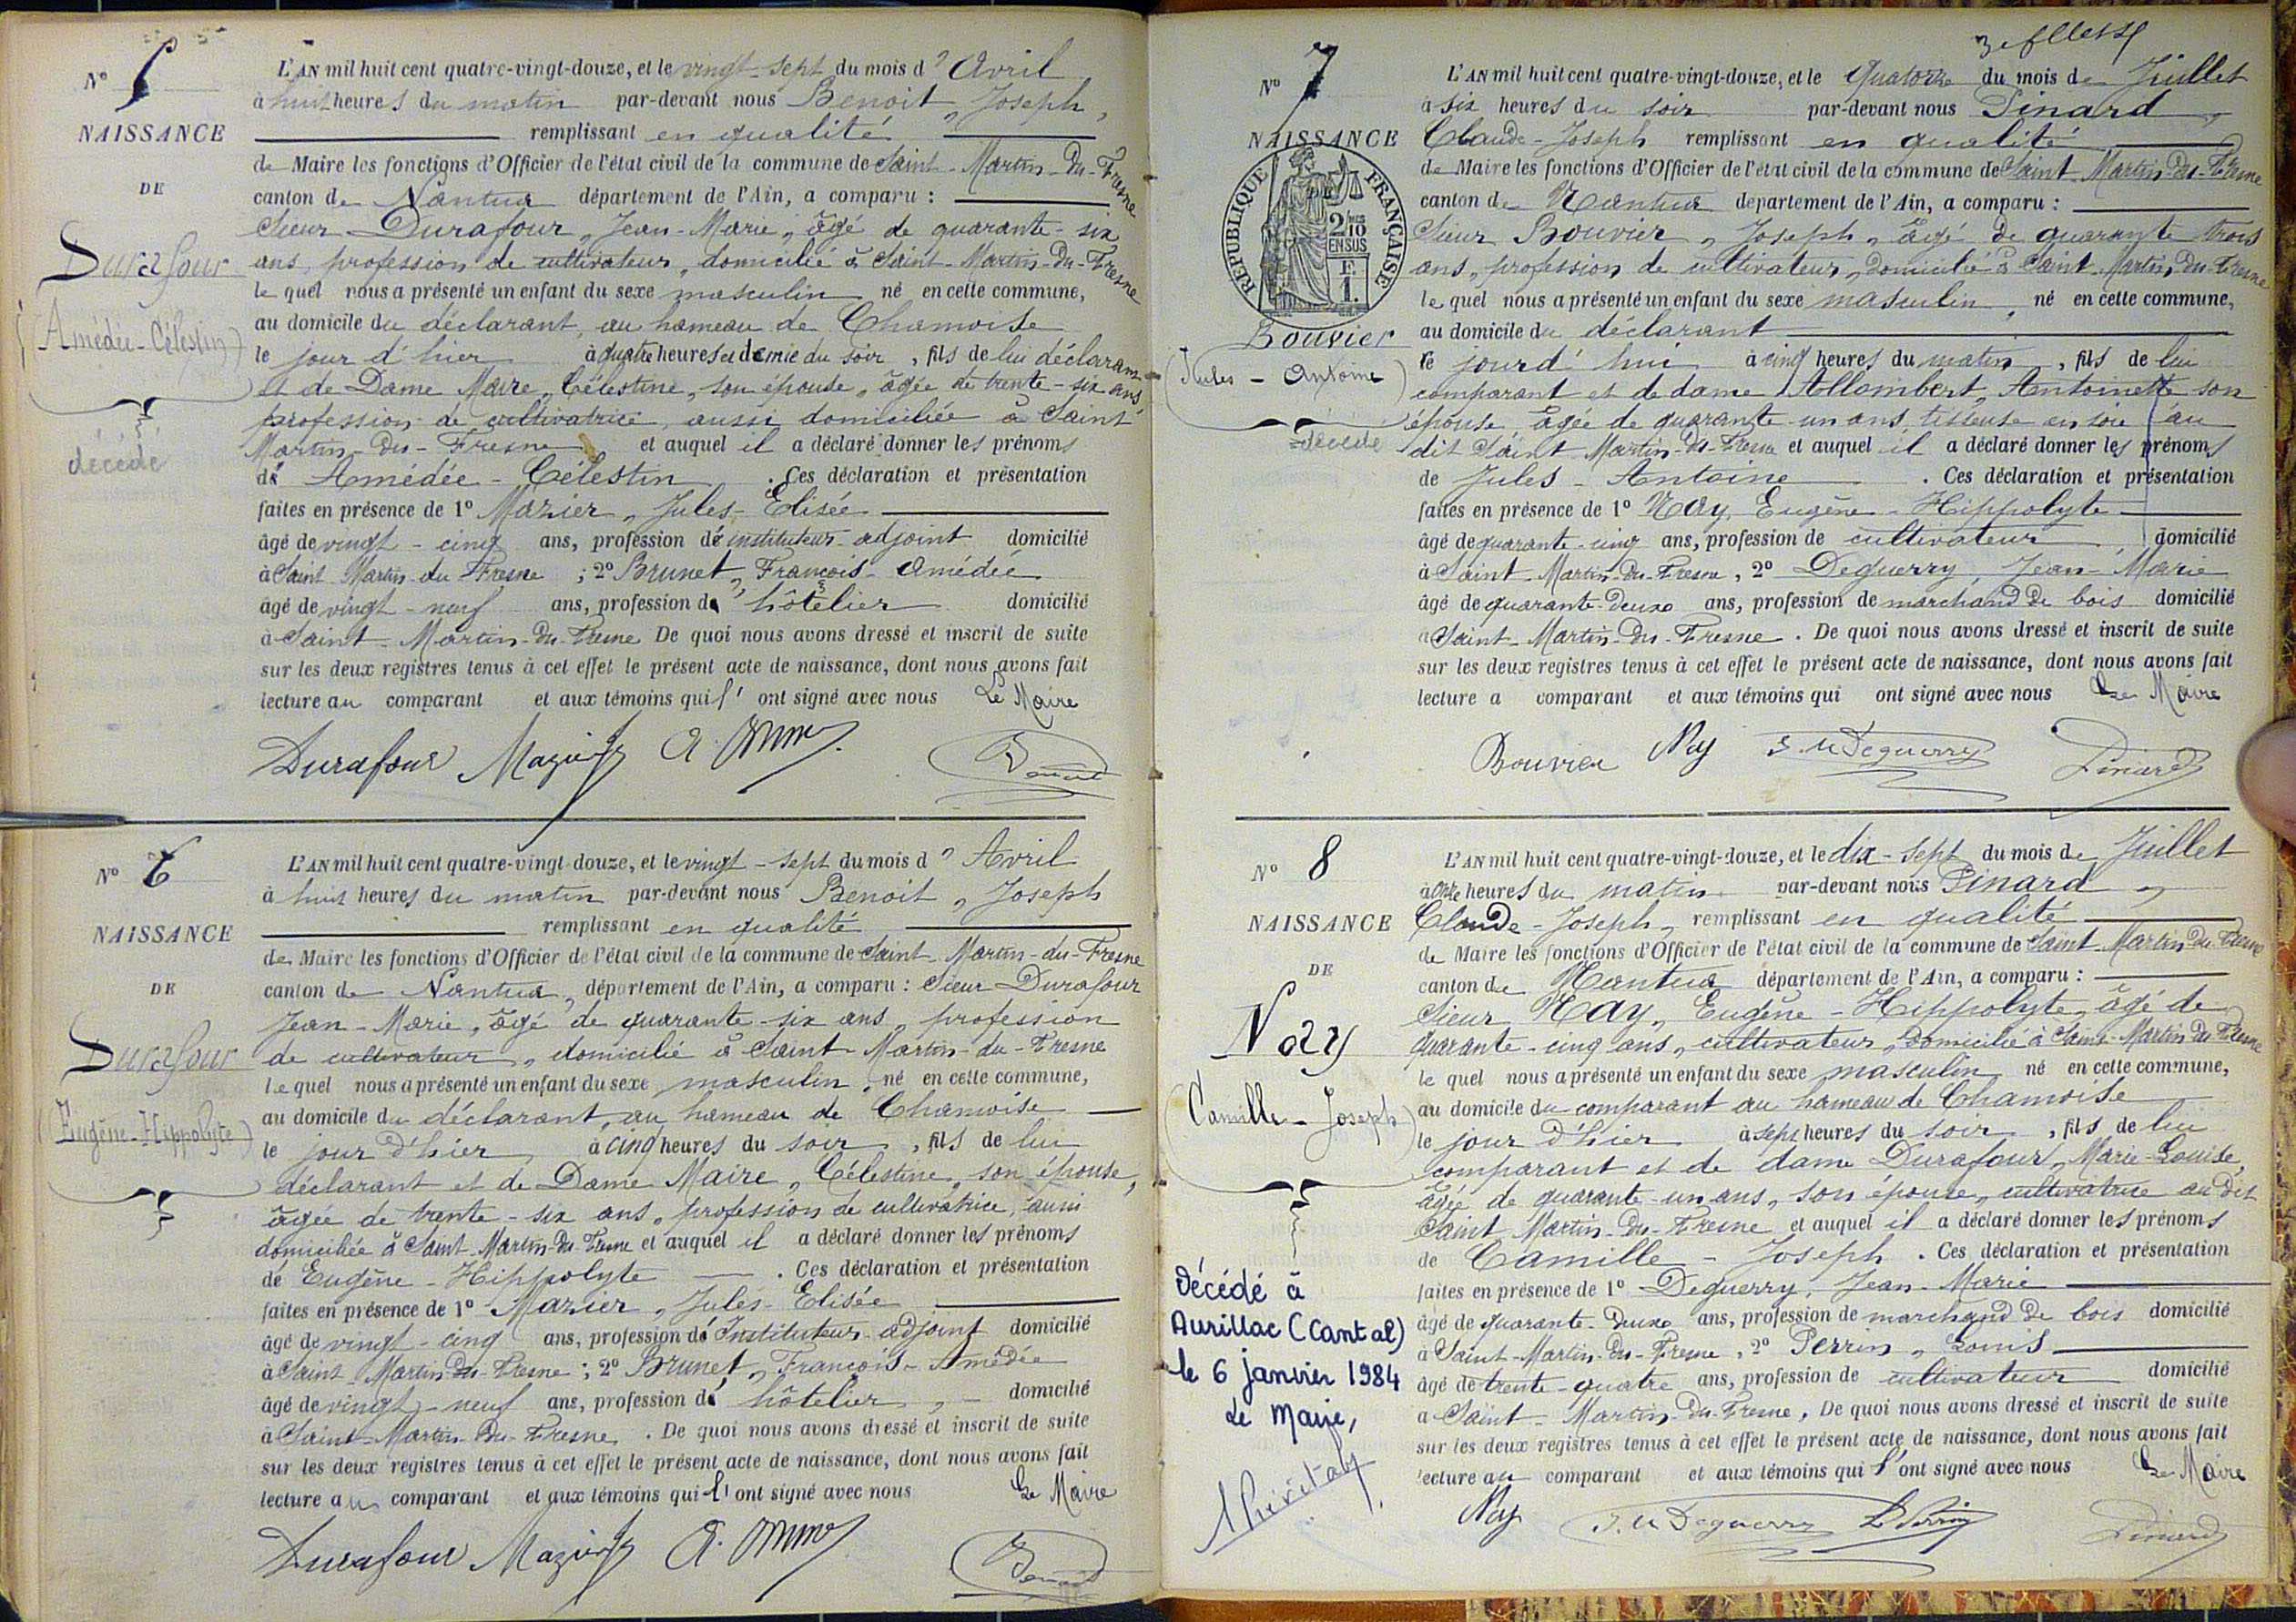 N° 5
NAISSANCE
DE
Durafour
(Amédée-Célestin)
décédé
L'AN mil huit cent quatre-vingt-douze, et le vingt-sept du mois d' Avril
à huit heures du matin par-devant nous Benoit, Joseph,
remplissant en qualité
de Maire les fonctions d'Officier de l'état civil de la commune de Saint-Martin-du-Fresne
canton de Nantua département de l'Ain, a comparu :
Sieur Durafour, Jean-Marie, âgé de quarante-six
ans, profession de cultivateur, domicilié à Saint-Martin-du-Fresne
le quel nous a présenté un enfant du sexe masculin né en cette commune,
au domicile du déclarant, au hameau de Chamoise
le jour d'hier à quatre heures et demie du soir, fils de lui déclarant
et de Dame Maire, Célestine, son épouse, âgée de trente-six ans
profession de cultivatrice, aussi domiciliée à Saint
Martin-du-Fresne et auquel il a déclaré donner les prénoms
de Amédée-Célestin. Ces déclaration et présentation
faites en présence de 1° Mazier, Jules-Elisée
âgé de vingt-cinq ans, profession de instituteur-adjoint domicilié
à Saint Martin-du-Fresne ; 2° Brunet, François-Amédée
âgé de vingt-neuf ans, profession de hôtelier domicilié
à Saint-Martin-du-Fresne De quoi nous avons dressé et inscrit de suite
sur les deux registres tenus à cet effet le présent acte de naissance, dont nous avons fait
lecture au comparant et aux témoins qui l'ont signé avec nous Le Maire
Durafour Mazier Benoit
N° 6
NAISSANCE
DE
Durafour
(Eugène-Hippolyte)
L'AN mil huit cent quatre-vingt-douze, et le vingt-sept du mois d' Avril
à huit heures du matin par-devant nous Benoit, Joseph
remplissant en qualité
de Maire les fonctions d'Officier de l'état civil de la commune de Saint-Martin-du-Fresne
canton de Nantua, département de l'Ain, a comparu : Sieur Durafour
Jean-Marie, âgé de quarante-six ans, profession
de cultivateur, domicilié à Saint-Martin-du-Fresne
le quel nous a présenté un enfant du sexe masculin, né en cette commune,
au domicile du déclarant, au hameau de Chamoise
le jour d'hier à cinq heures du soir, fils de lui
déclarant et de Dame Maire, Célestine, son épouse,
âgée de trente-six ans, profession de cultivatrice, aussi
domiciliée à Saint-Martin-du-Fresne et auquel il a déclaré donner les prénoms
de Eugène-Hippolyte. Ces déclaration et présentation
faites en présence de 1° Mazier, Jules-Elisée
âgé de vingt-cinq ans, profession de Instituteur-adjoint domicilié
à Saint-Martin-du-Fresne ; 2° Brunet, François-Amédée
âgé de vingt-neuf ans, profession de hôtelier, domicilié
à Saint-Martin-du-Fresne. De quoi nous avons dressé et inscrit de suite
sur les deux registres tenus à cet effet le présent acte de naissance, dont nous avons fait
lecture au comparant et aux témoins qui l'ont signé avec nous Le Maire
Durafour Mazier Benoit
N° 7
NAISSANCE
RÉPUBLIQUE FRANÇAISE
2/10 EN SUS
F. 1.
Bouvier
(Jules-Antoine)
décédé
L'AN mil huit cent quatre-vingt-douze, et le quatorze du mois de Juillet
à six heures du soir par-devant nous Pinard,
Claude-Joseph remplissant en qualité
de Maire les fonctions d'Officier de l'état civil de la commune de Saint-Martin-du-Fresne
canton de Nantua département de l'Ain, a comparu :
Sieur Bouvier, Joseph, âgé de quarante trois
ans, profession de cultivateur, domicilié à Saint-Martin-du-Fresne
le quel nous a présenté un enfant du sexe masculin, né en cette commune,
au domicile du déclarant
le jourd'hui à cinq heures du matin, fils de lui
comparant et de dame Allombert, Antoinette son
épouse, âgée de quarante-un ans, tisseuse en soie au
dit Saint Martin-du-Fresne et auquel il a déclaré donner les prénoms
de Jules-Antoine. Ces déclaration et présentation
faites en présence de 1° Nay, Eugène-Hippolyte
âgé de quarante-cinq ans, profession de cultivateur, domicilié
à Saint-Martin-du-Fresne, 2° Deguerry, Jean-Marie
âgé de quarante-deux ans, profession de marchand de bois domicilié
à Saint-Martin-du-Fresne. De quoi nous avons dressé et inscrit de suite
sur les deux registres tenus à cet effet le présent acte de naissance, dont nous avons fait
lecture a comparant et aux témoins qui ont signé avec nous Le Maire
Bouvier Nay J. M Deguerry Pinard
N° 8
NAISSANCE
DE
Nay
(Camille-Joseph)
Décédé à
Aurillac (Cantal)
le 6 janvier 1984
Le Maire,
L'AN mil huit cent quatre-vingt-douze, et le dix-sept du mois de Juillet
à onze heures du matin par-devant nous Pinard,
Claude-Joseph, remplissant en qualité
de Maire les fonctions d'Officier de l'état civil de la commune de Saint-Martin-du-Fresne
canton de Nantua département de l'Ain, a comparu :
Sieur Nay, Eugène-Hippolyte, âgé de
quarante-cinq ans, cultivateur, domicilié à Saint-Martin-du-Fresne
le quel nous a présenté un enfant du sexe masculin né en cette commune,
au domicile du comparant au hameau de Chamoise
le jour d'hier à sept heures du soir, fils de lui
comparant et de dame Durafour, Marie-Louise,
âgée de quarante-un ans, son épouse, cultivatrice au dit
Saint Martin-du-Fresne et auquel il a déclaré donner les prénoms
de Camille-Joseph. Ces déclaration et présentation
faites en présence de 1° Deguerry, Jean-Marie
âgé de quarante-deux ans, profession de marchand de bois domicilié
à Saint-Martin-du-Fresne, 2° Perrin, Louis
âgé de trente-quatre ans, profession de cultivateur domicilié
a Saint-Martin-du-Fresne, De quoi nous avons dressé et inscrit de suite
sur les deux registres tenus à cet effet le présent acte de naissance, dont nous avons fait
lecture au comparant et aux témoins qui l'ont signé avec nous Le Maire
Nay J. M Deguerry L Perrin Pinard